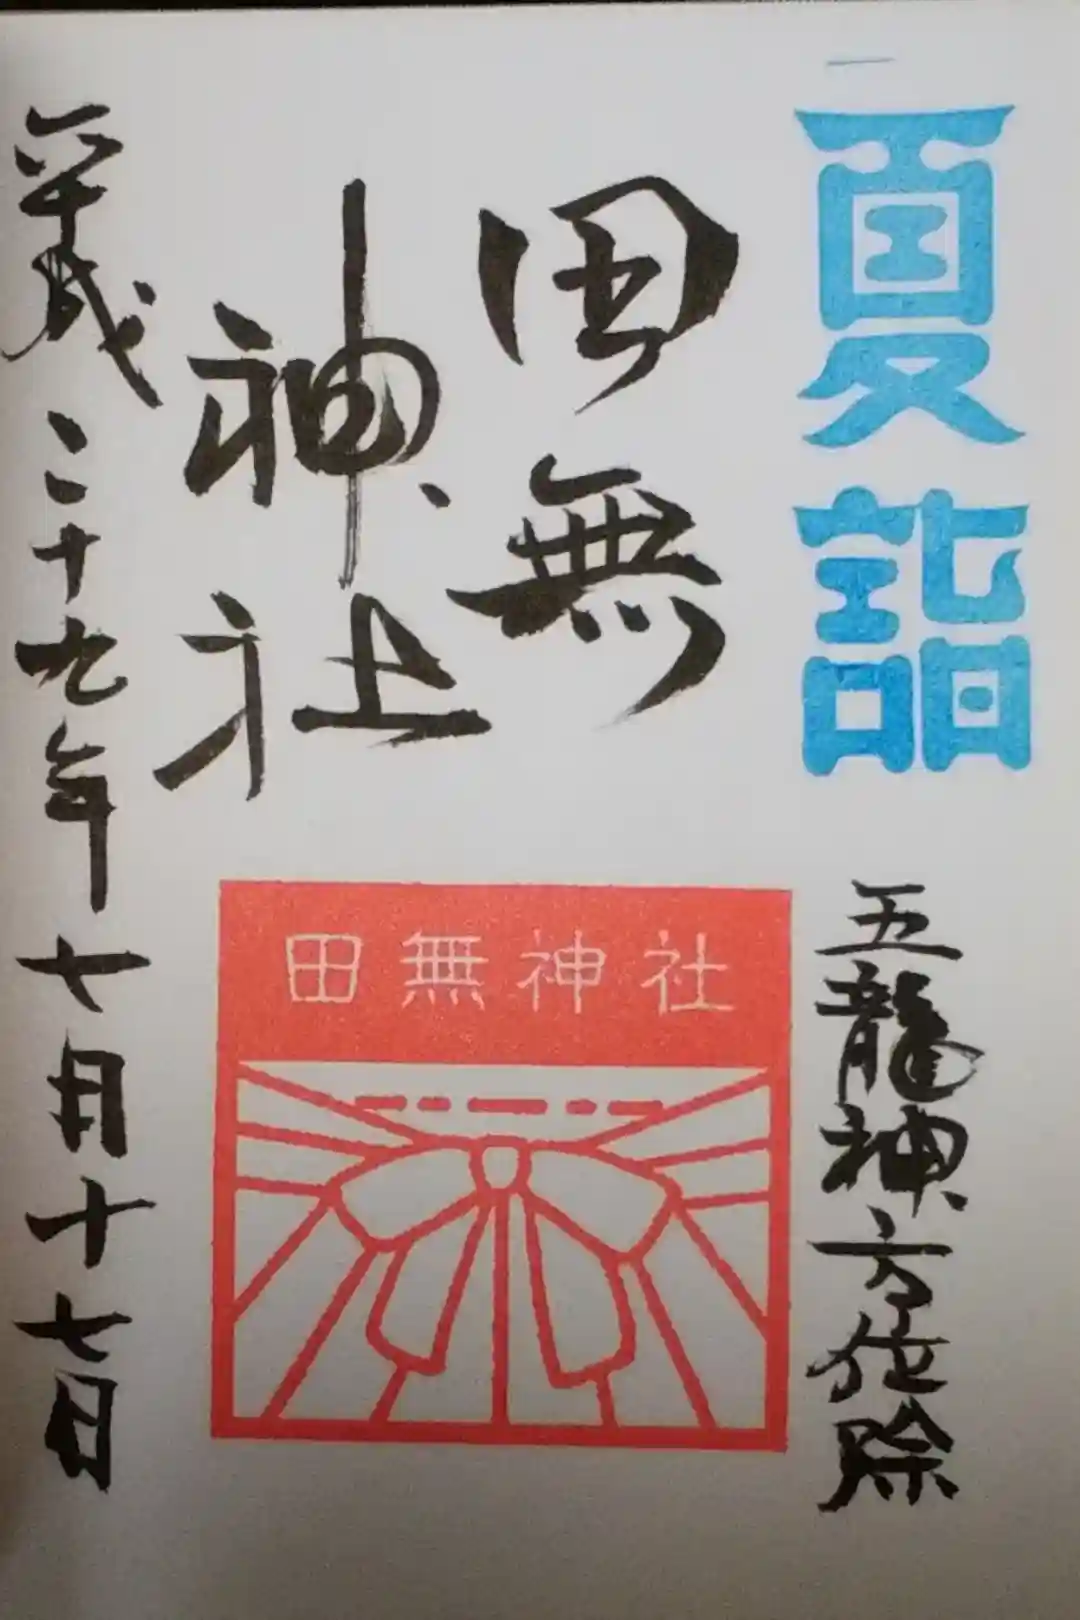 夏詣
五龍神方位除
田無
神社
田無神社
平成二十九年七月十七日